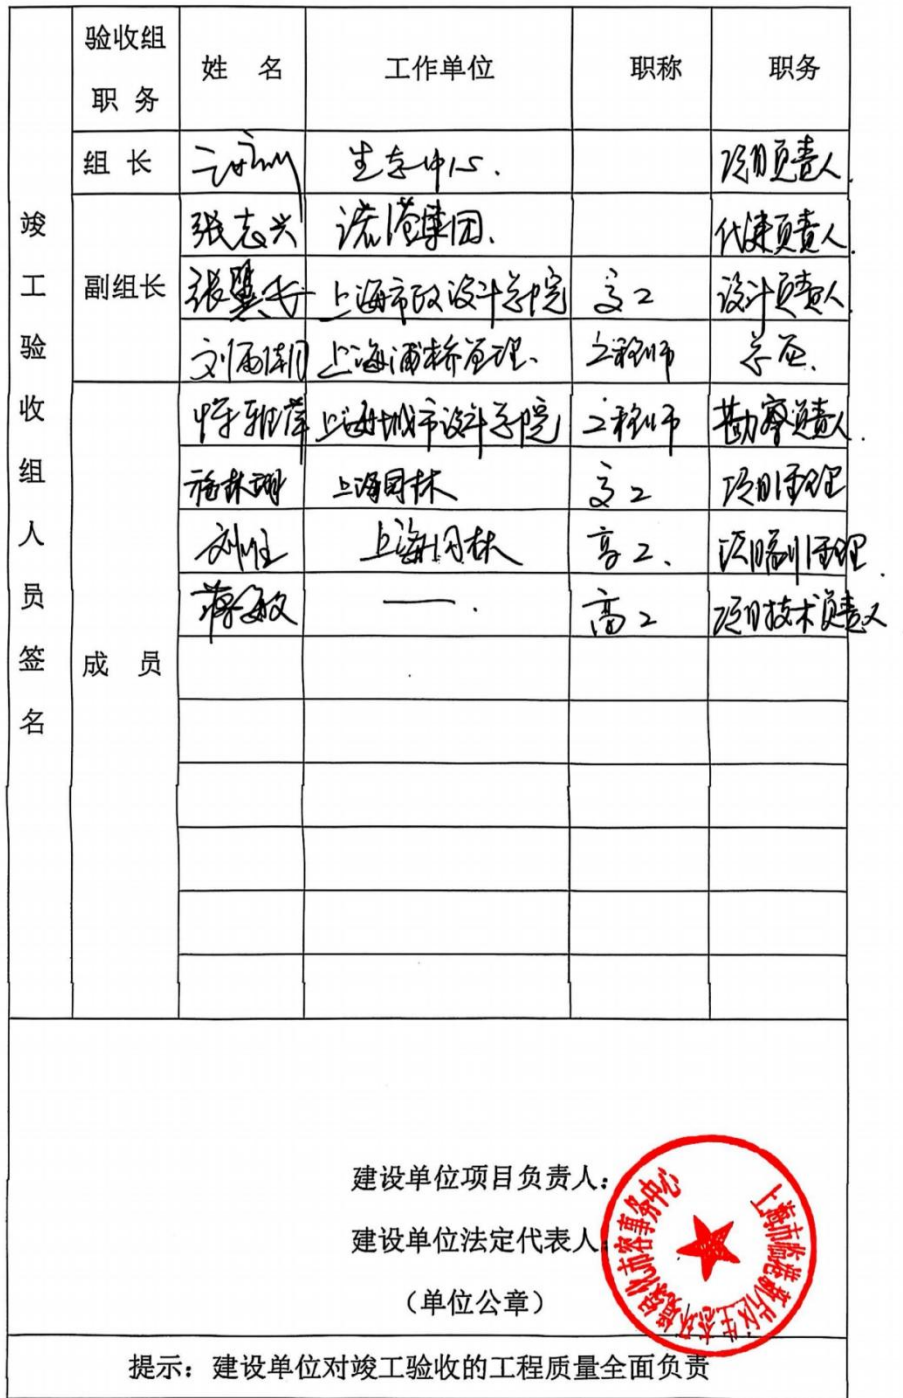 验收组职务 姓 名 工作单位 职称 职务
竣工验收组人员签名
组 长 生态中心. 项目负责人.
副组长
张志兴 港集团. 代建负责人.
张翼 上海市政设计总院 高工 设计负责人
刘 上海浦桥管理. 工程师 总监.
成 员
雅萍 上海城市设计总院 工程师 勘察负责人.
上海园林 高工 项目经理
刘 上海园林 高工. 项目副经理.
蒋 敏 —. 高工 项目技术负责人
建设单位项目负责人:
建设单位法定代表人:
(单位公章)
上海市临港新片区生态环境绿化市容事务中心
提示:建设单位对竣工验收的工程质量全面负责